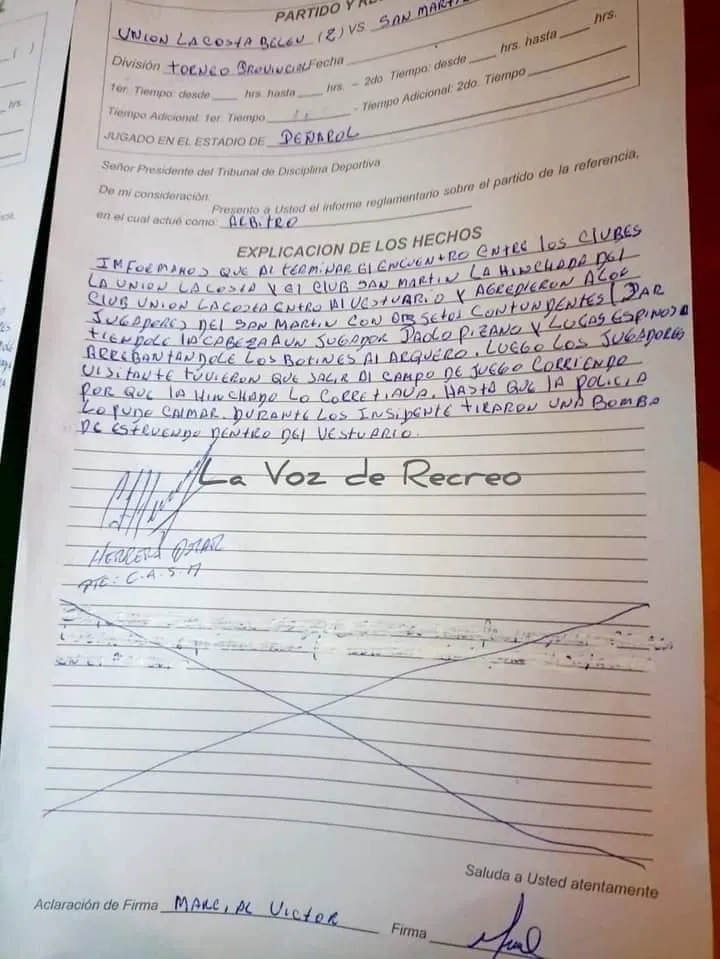 PARTIDO Y
UNION LACOSTA BELEN (2) VS. SAN MART
División TORNEO PROVINCIAL Fecha
1er. Tiempo: desde hrs. hasta hrs. - 2do. Tiempo: desde hrs. hasta hrs.
Tiempo Adicional: 1er. Tiempo - Tiempo Adicional: 2do. Tiempo
JUGADO EN EL ESTADIO DE PEÑAROL
Señor Presidente del Tribunal de Disciplina Deportiva
De mi consideración:
Presento a Usted el informe reglamentario sobre el partido de la referencia,
en el cual actué como: ARBITRO
EXPLICACION DE LOS HECHOS
IMFORMAMOS QUE AL TERMINAR El ENCUENTRO ENTRE los CLUBES
LA UNION LACOSTA Y El CLUB SAN MARTIN LA HINCHADA DEL
CLUB UNION LACOSTA ENTRO Al VESTUARIO Y AGREDIERON A LOS
JUGADORES DEL SAN MARTIN CON OBJSETOS CONTUNDENTES (PAR
TIENDOLE lA CABEZA A UN JUGADOR PAOLO PIZANO Y LUCAS ESPINOSA
ARREBANTANDOLE LOS BOTINES Al ARQUERO. LUEGO LOS JUGADORES
VISITANTE TUVIERON QUE SALIR Al CAMPO DE JUEGO CORRIENDO
POR QUE lA HINCHADA LO CORRETIAVA. HASTA QUE lA POLICIA
LO PUDO CALMAR. DURANTE LOS INSIDENTE TIRARON UNA BOMBA
DE ESTRUENDO DENTRO DEl VESTUARIO.
La Voz de Recreo
HERRERA OSCAR
PTE: C.A.S.M
EN El
Saluda a Usted atentamente
Aclaración de Firma MARCIAL VICTOR
Firma